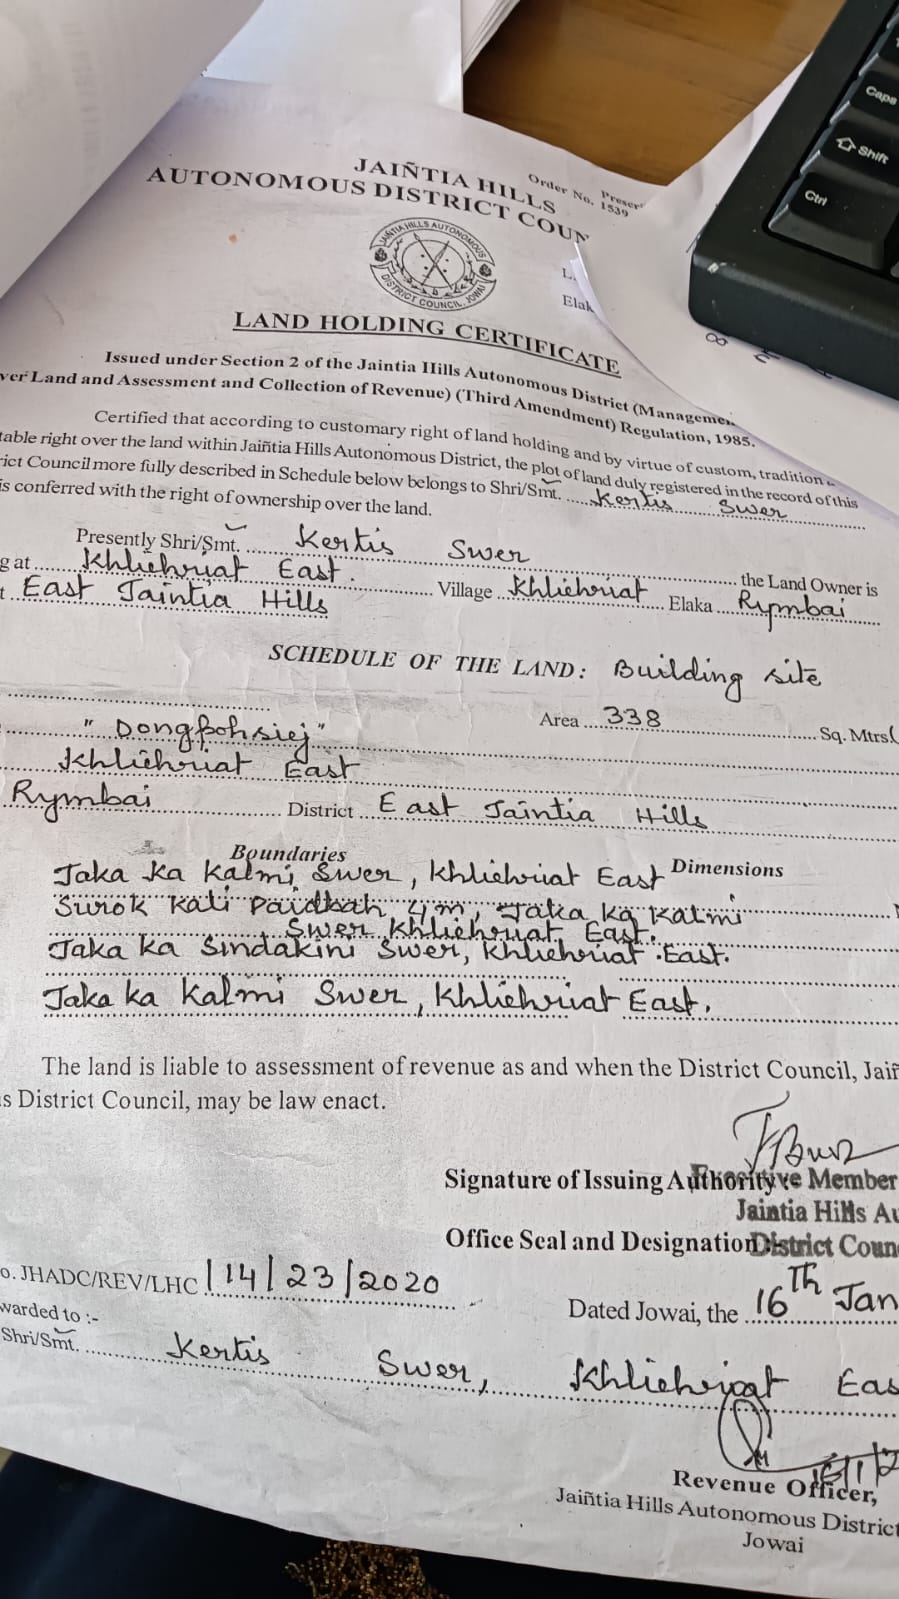 JAIÑTIA HILLS
AUTONOMOUS DISTRICT COUN
Preser
Order No. 1539
JAIÑTIA HILLS AUTONOMOUS
DISTRICT COUNCIL, JOWAI
L.
Elak
LAND HOLDING CERTIFICATE
Issued under Section 2 of the Jaintia Hills Autonomous District (Managemen
ver Land and Assessment and Collection of Revenue) (Third Amendment) Regulation, 1985.
Certified that according to customary right of land holding and by virtue of custom, tradition
table right over the land within Jaiñtia Hills Autonomous District, the plot of land duly registered in the record of this
rict Council more fully described in Schedule below belongs to Shri/Smt. Kertis Swer
is conferred with the right of ownership over the land.
Presently Shri/Smt. Kertis Swer the Land Owner is
g at Khliehriat East. Village Khliehriat Elaka Rymbai
t East Jaintia Hills
SCHEDULE OF THE LAND: Building site
Area 338 Sq. Mtrs(
"Dongpohsiej"
Khliehriat East
Rymbai District East Jaintia Hills
Boundaries Dimensions
Jaka ka Kalmi Swer, Khliehriat East
Surok Kali Paidbah 4m, Jaka ka Kalmi
Swer Khliehriat East.
Jaka ka Sindakini Swer, Khliehriat East.
Jaka ka Kalmi Swer, Khliehriat East.
The land is liable to assessment of revenue as and when the District Council, Jaiñ
s District Council, may be law enact.
Signature of Issuing Authority ve Member
Jaintia Hills Au
Office Seal and Designation District Coun
o. JHADC/REV/LHC/14/23/2020
Dated Jowai, the 16Th Jan
warded to :-
Shri/Smt. Kertis Swer, Khliehriat Eas
Revenue Officer,
Jaiñtia Hills Autonomous District
Jowai
Caps
Shift
Ctrl